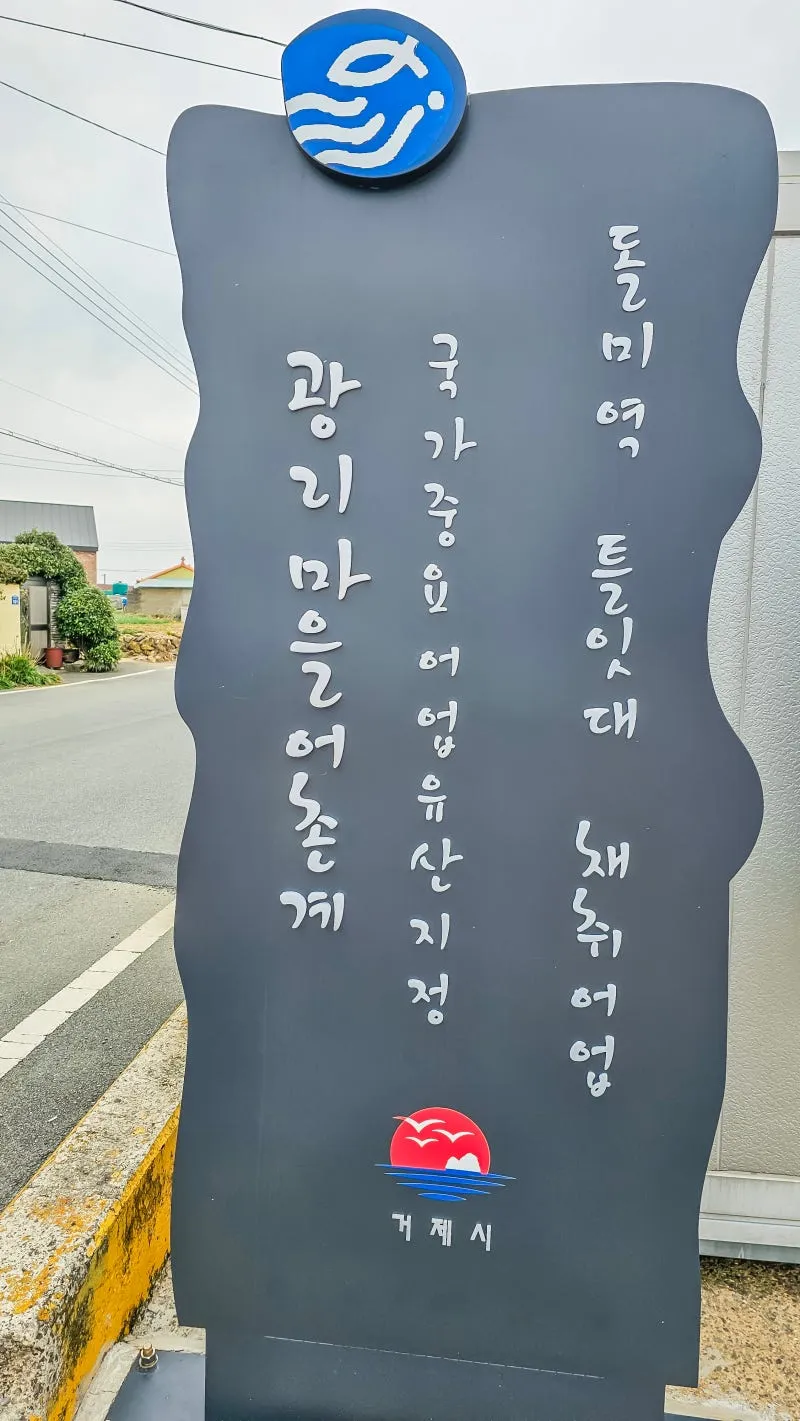 돌미역 틀잇대 채취어업
국가중요어업유산지정
광리마을어촌계
거제시